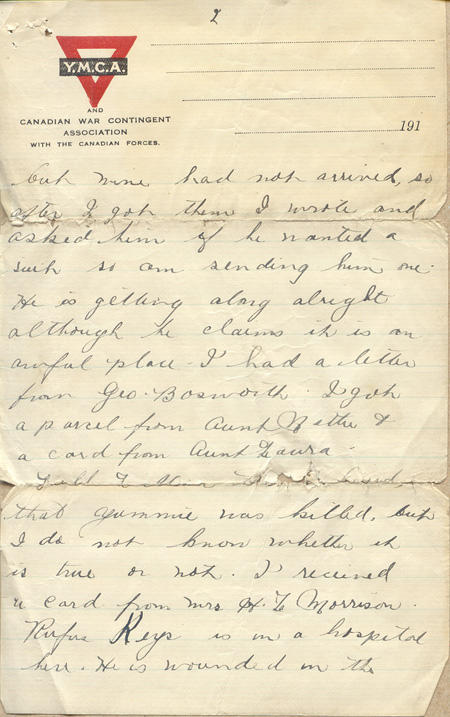 2
Y.M.C.A.
AND
CANADIAN WAR CONTINGENT
ASSOCIATION
WITH THE CANADIAN FORCES.
191
but mine had not arrived, so
after I got them I wrote and
asked him if he wanted a
suit so am sending him one.
He is getting along alright
although he claims it is an
awful place. I had a letter
from Geo. Bosworth. I got
a parcel from Aunt Nettie &
a card from Aunt Laura.
that Yummie was killed, but
I do not know whether it
is true or not. I received
a card from Mrs H. L. Morrison.
Rufus Keys is in a hospital
here. He is wounded in the